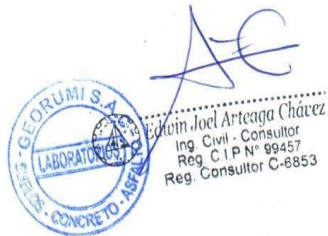 GEORUMI S.A.C.
LABORATORIOS
SUELOS - CONCRETO - ASFALTO
Edwin Joel Arteaga Chávez
Ing. Civil - Consultor
Reg. C.I.P N° 99457
Reg. Consultor C-6853